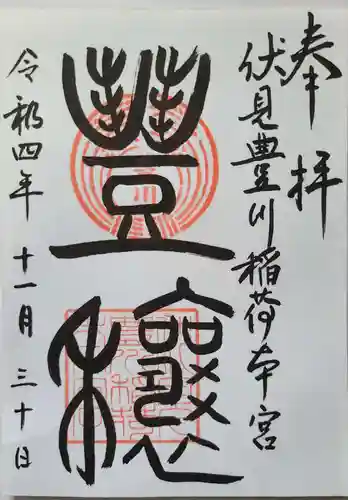 奉拝
伏見豊川稲荷本宮
豊穣
令和四年 十一月 三十日